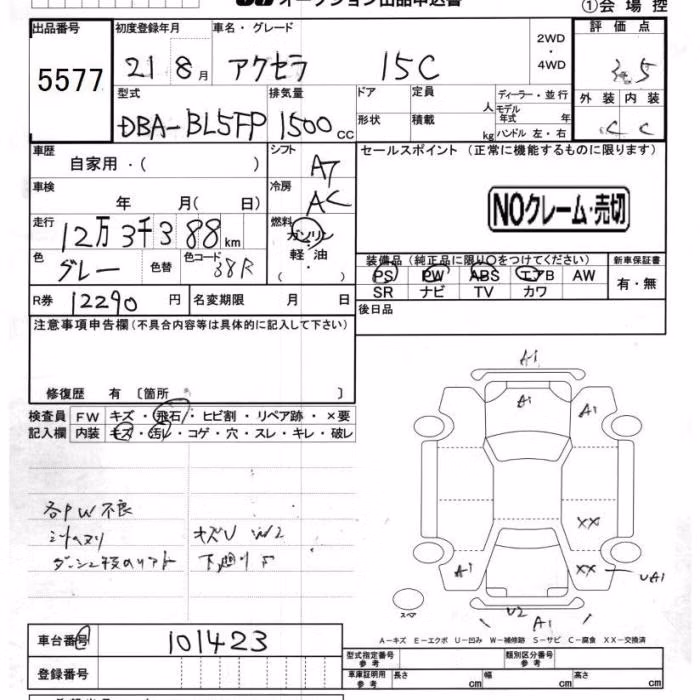 オークション出品申込書
①会場控
出品番号 5577
初度登録年月 21 8月
車名・グレード アクセラ 15C
2WD・4WD
評価点 3.5
外装 C 内装 C
型式 DBA-BL5FP
排気量 1500cc
ドア 形状
定員 人 積載 kg
ディーラー・並行
モデル年式 年
ハンドル 左・右
車歴 自家用・( )
シフト AT
セールスポイント（正常に機能するものに限ります）
車検 年 月( 日)
冷房 AC
NOクレーム・売切
走行 12万3千388km
燃料 ガソリン・軽油・( )
色 グレー 色替 色コード 38R
装備品（純正品に限り○をつけてください）
新車保証書
PS PW ABS エアB AW
SR ナビ TV カワ
有・無
R券 12290円 名変期限 月 日
後日品
注意事項申告欄（不具合内容等は具体的に記入して下さい）
修復歴 有〔箇所 〕
検査員記入欄
FW キズ・飛石・ヒビ割・リペア跡・×要
内装 キズ・汚レ・コゲ・穴・スレ・キレ・破レ
各PW不良
キズU W2
A1
A1
A1
XX
A1
XX
UA1
U2
A1
スペア
A－キズ E－エクボ U－凹み W－補修跡 S－サビ C－腐食 XX－交換済
車台番号 101423
登録番号
型式指定番号 参考
類別区分番号 参考
車庫証明用 参考 長さ cm 幅 cm 高さ cm